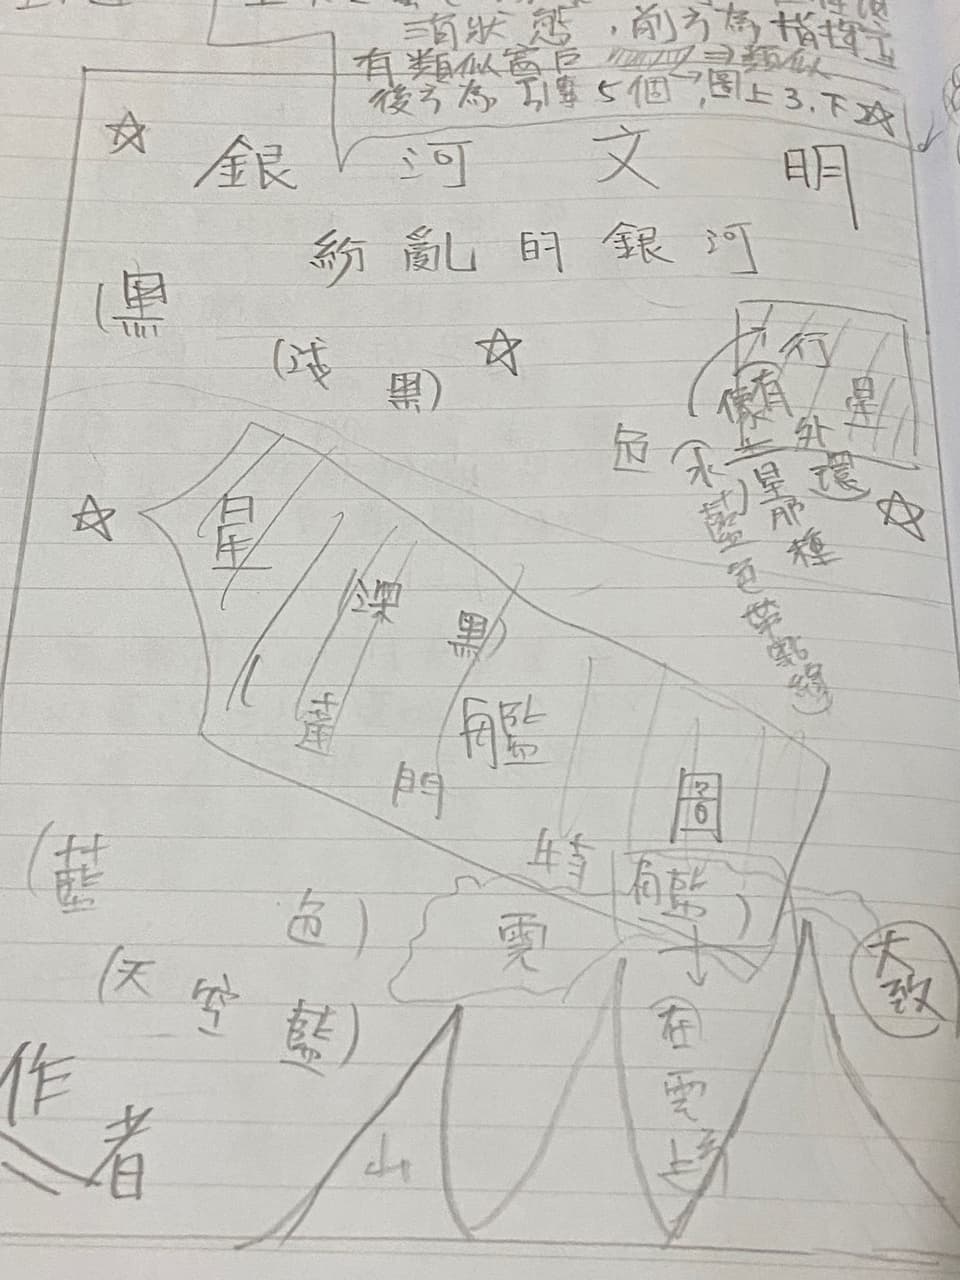 項狀態，前方為指揮室
有類似窗戶 ⇒類似
後方為引擎5個→圖上3.下2
銀河文明
紛亂的銀河
(黑
(淺黑)
行星
有外環
像土星那種
色
(水藍)
藍色帶點綠
星
深黑)
專
艦
門
圖
特
有藍)
(藍色)
雲
(天空藍)
大致
在雲上方
山
作者